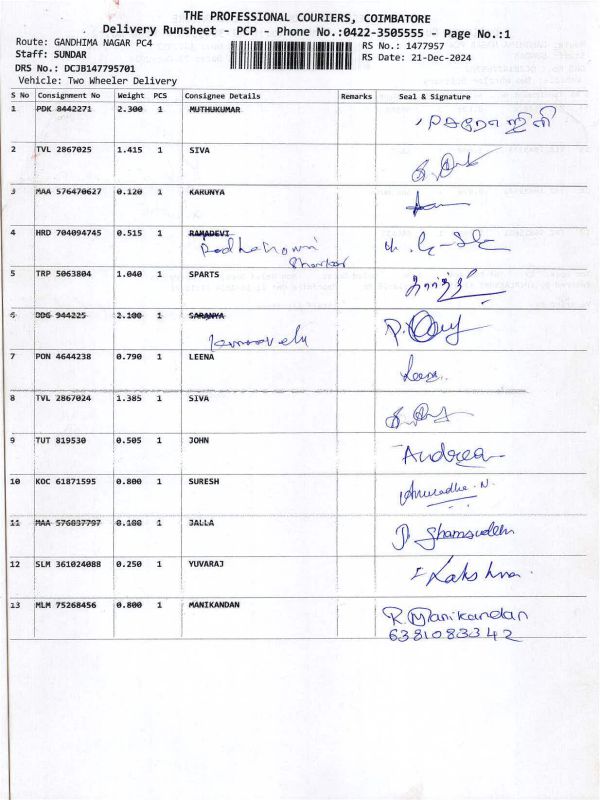 THE PROFESSIONAL COURIERS, COIMBATORE
Delivery Runsheet - PCP - Phone No.:0422-3505555 - Page No.:1
Route: GANDHIMA NAGAR PC4 RS No.: 1477957
Staff: SUNDAR RS Date: 21-Dec-2024
DRS No.: DCJB147795701
Vehicle: Two Wheeler Delivery
S No Consignment No Weight PCS Consignee Details Remarks Seal & Signature
1 PDK 8442271 2.300 1 MUTHUKUMAR
2 TVL 2867025 1.415 1 SIVA
3 MAA 576470627 0.120 1 KARUNYA
4 HRD 704094745 0.515 1 RAMADEVI
5 TRP 5063804 1.040 1 SPARTS
6 DDG 944225 2.100 1 SARANYA
7 PON 4644238 0.790 1 LEENA Leena
8 TVL 2867024 1.385 1 SIVA
9 TUT 819530 0.505 1 JOHN Andrea
10 KOC 61871595 0.800 1 SURESH Anuradha. N.
11 MAA 576837797 0.100 1 JALLA
12 SLM 361024088 0.250 1 YUVARAJ
13 MLM 75268456 0.800 1 MANIKANDAN R. Manikandan
6381083342